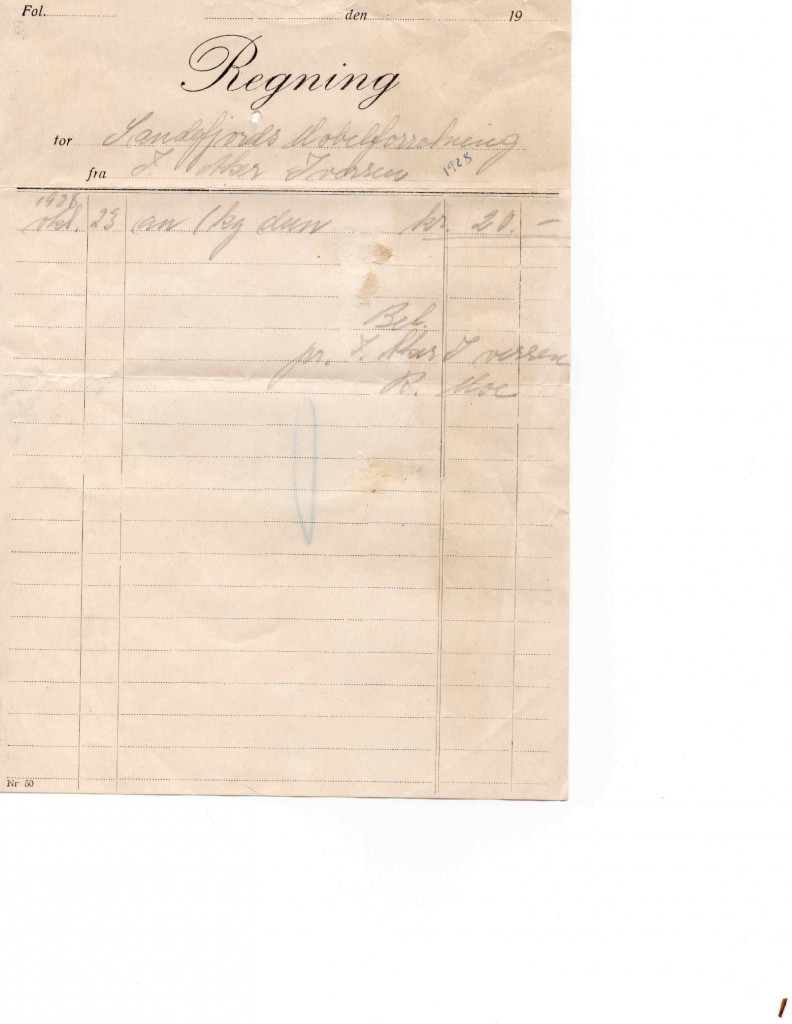 Fol. den 19
Regning
for Sandefjords Mobelforretning
fra J. Iversen 1928
1928
okt. 23 an 1 kg dun kr. 20. —
Bet.
pr. J. Iversen
R. Moe
Nr 50